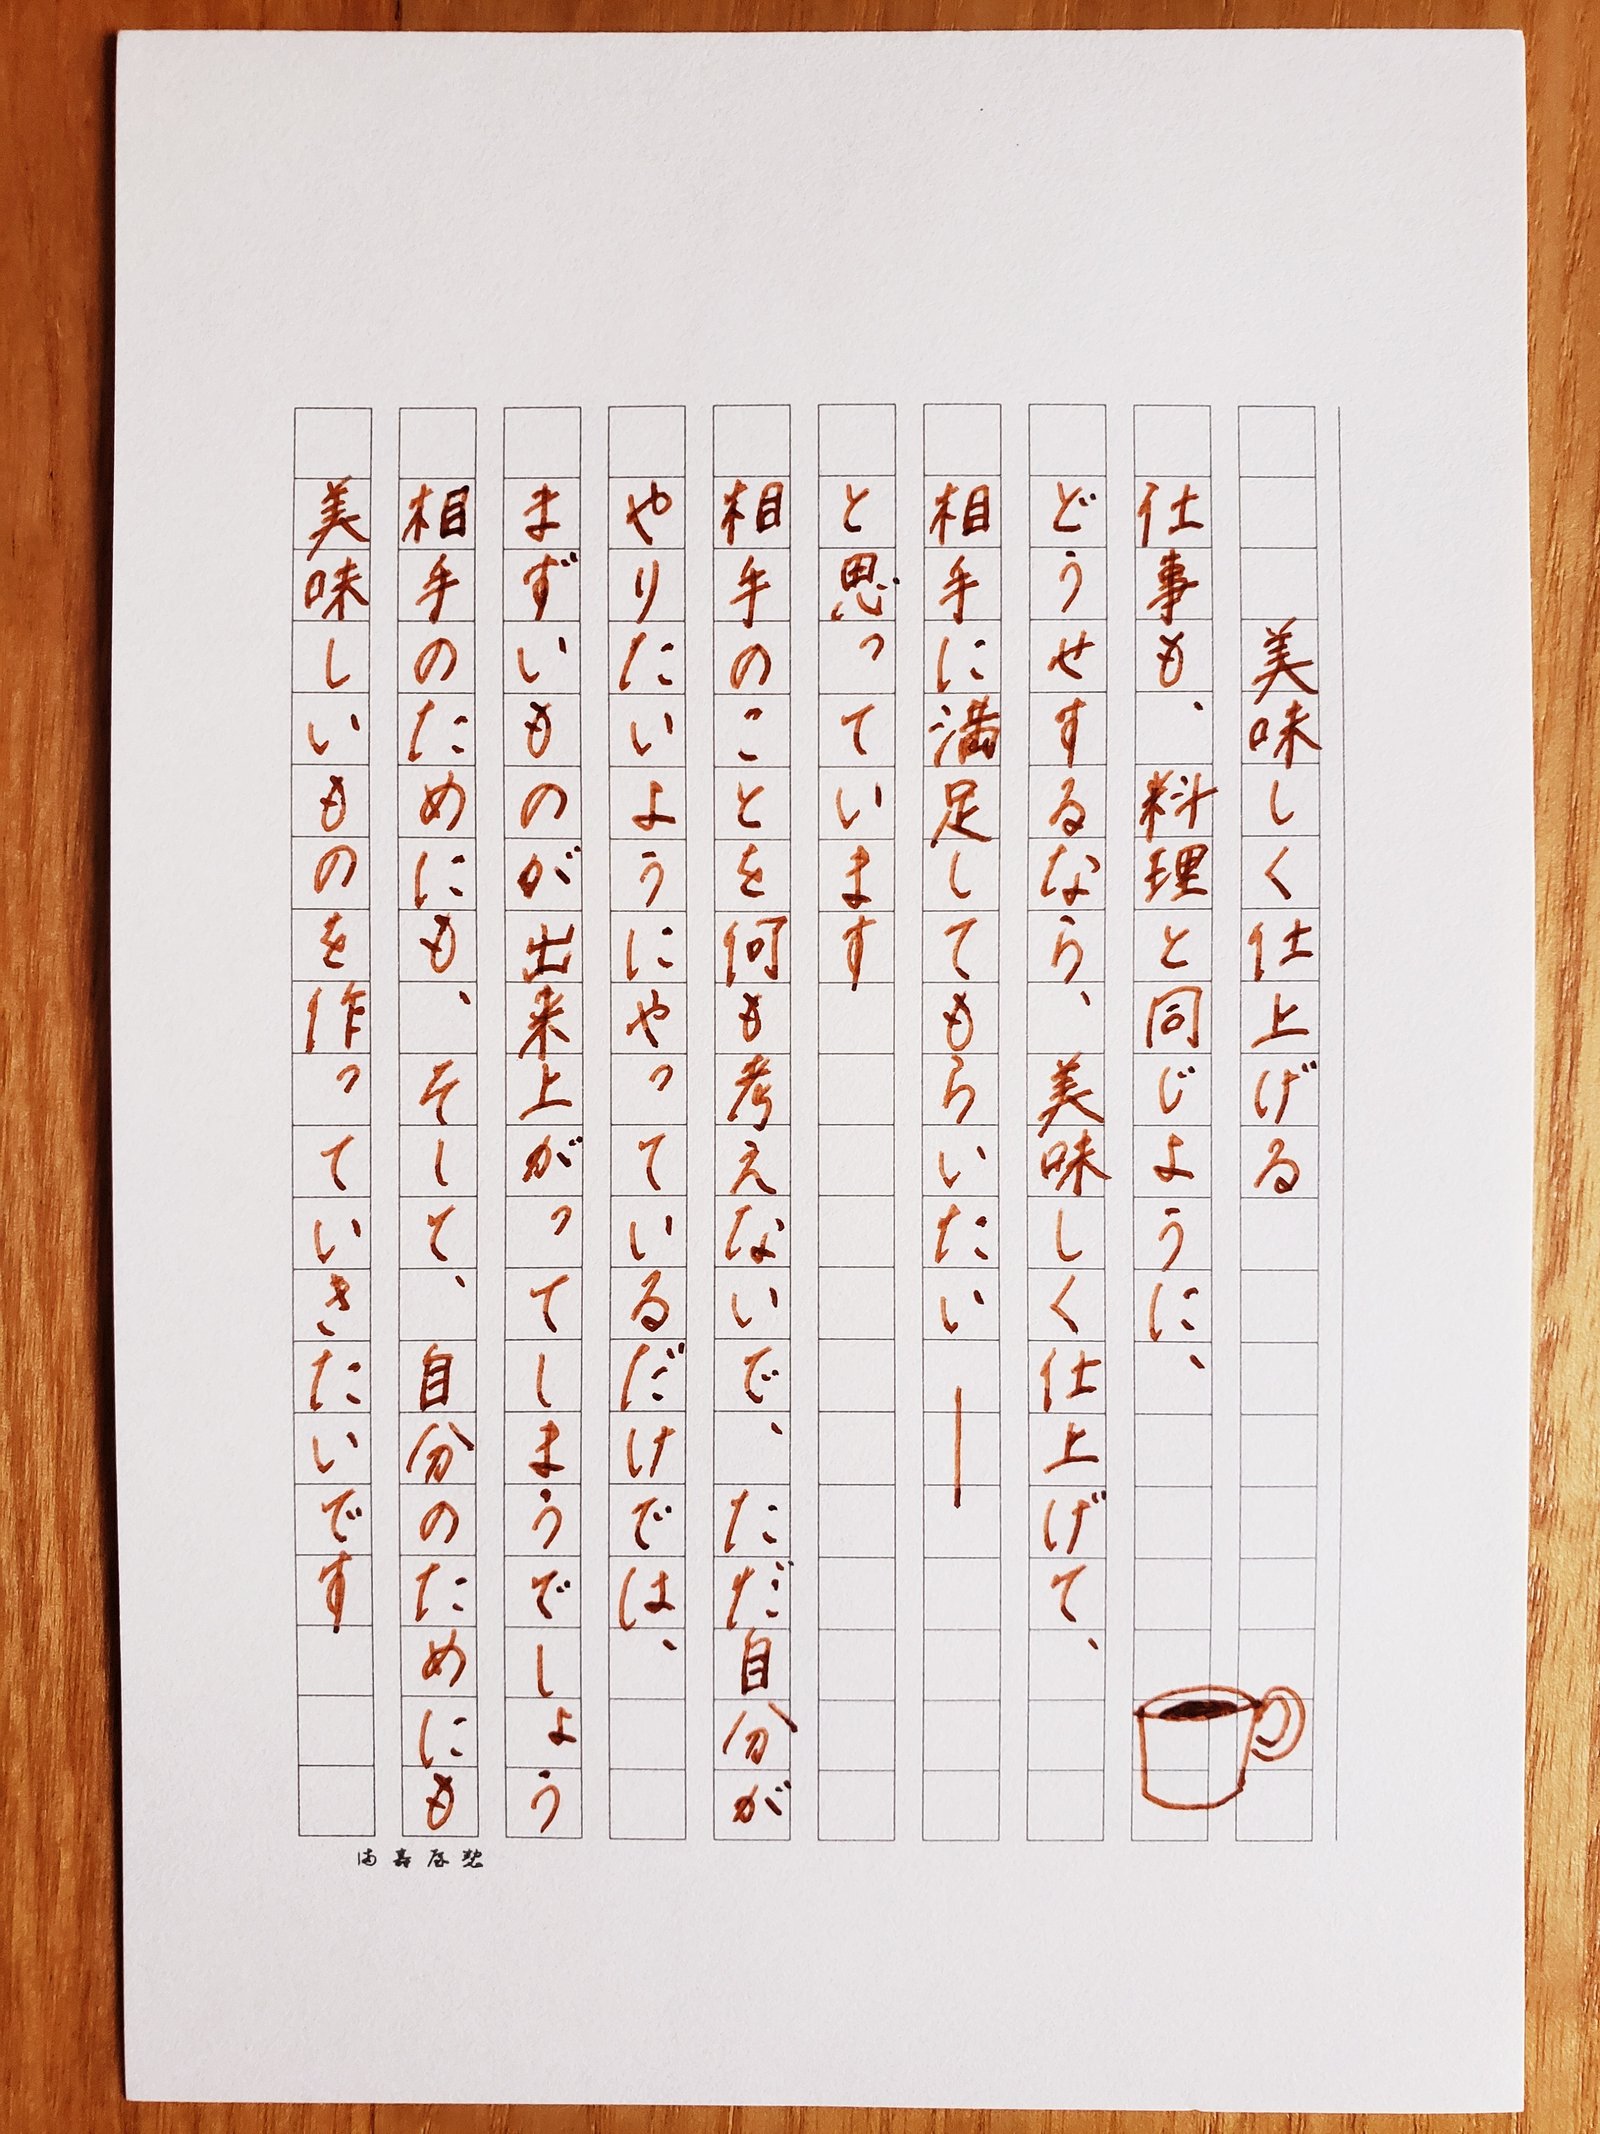 美味しく仕上げる
仕事も、料理と同じように、
どうせするなら、美味しく仕上げて、
相手に満足してもらいたい―
と思っています
相手のことを何も考えないで、ただ自分が
やりたいようにやっているだけでは、
まずいものが出来上がってしまうでしょう
相手のためにも、そして、自分のためにも
美味しいものを作っていきたいです